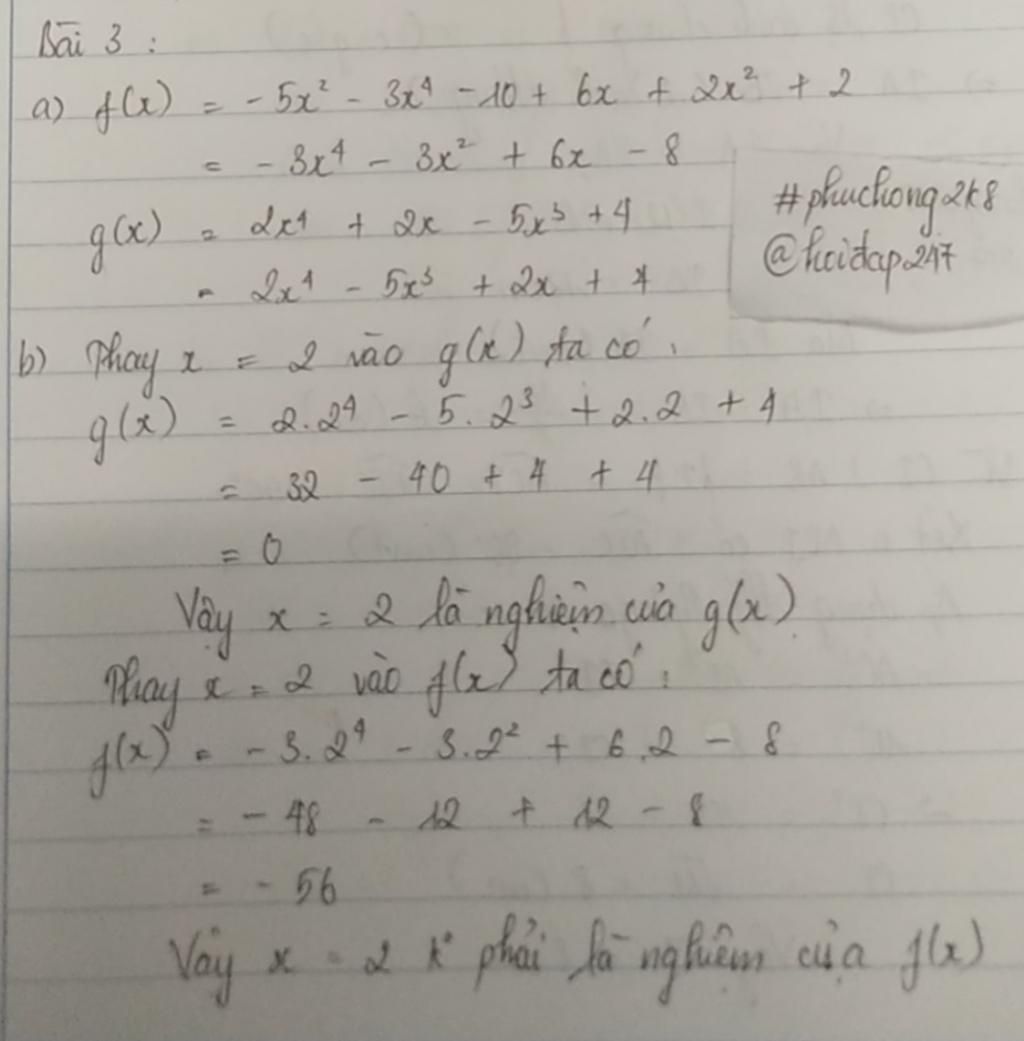 Bài 3 :
a) f(x) = -5x² - 3x⁴ - 10 + 6x + 2x² + 2
= -3x⁴ - 3x² + 6x - 8
g(x) = 2x⁴ + 2x - 5x³ + 4
= 2x⁴ - 5x³ + 2x + 4
#phuchong2k8
@hoidap247
b) Thay x = 2 vào g(x) ta có :
g(x) = 2.2⁴ - 5.2³ + 2.2 + 4
= 32 - 40 + 4 + 4
= 0
Vậy x = 2 là nghiệm của g(x)
Thay x = 2 vào f(x) ta có :
f(x) = -3.2⁴ - 3.2² + 6.2 - 8
= -48 - 12 + 12 - 8
= -56
Vậy x = 2 k° phải là nghiệm của f(x)